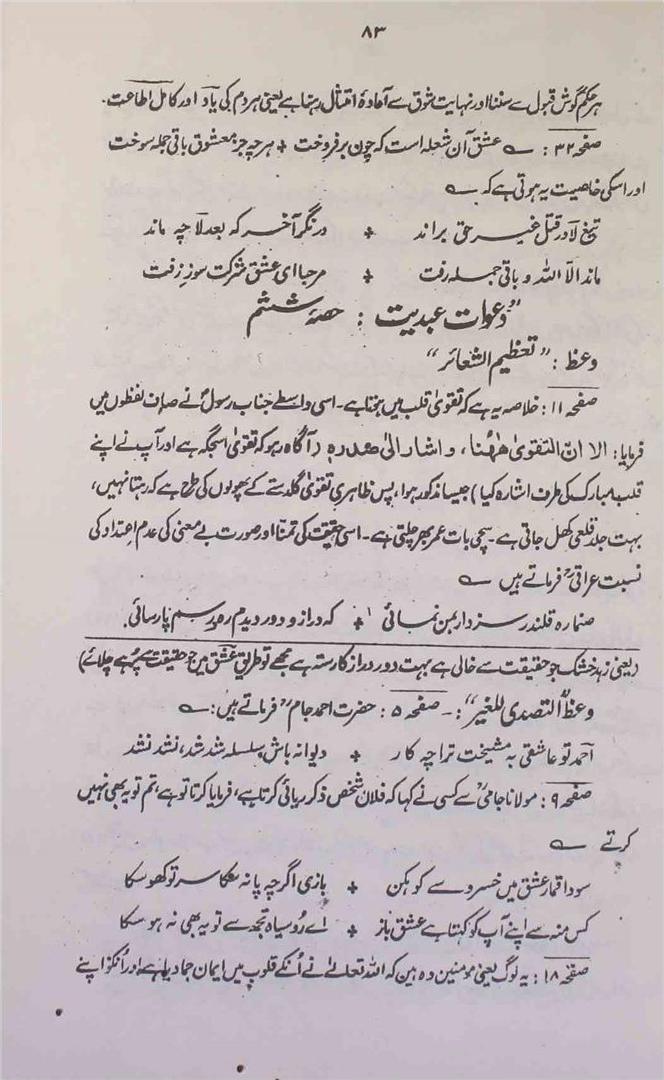 ۸۳
ہر حکم گوش قبول سے سننا اور نہایت شوق سے آمادۂ امتثال رہتا ہے یعنی ہر دم کی یاد اور کامل اطاعت۔
صفحہ ۳۲: ؎ عشق آن شعلہ است کہ چون بر فروخت + ہر چہ جز معشوق باقی جملہ سوخت
اور اسکی خاصیت یہ ہوتی ہے کہ ؎
تیغ لا در قتل غیر حق براند + در نگر آخر کہ بعد لا چہ ماند
ماند الا اللہ و باقی جملہ رفت + مرحبا اے عشق شرکت سوز زفت
"دعوات عبدیت: حصۂ ششم
وعظ: "تعظیم الشعائر"
صفحہ ۱۱: خلاصہ یہ ہے کہ تقویٰ قلب میں ہوتا ہے۔ اسی واسطے جناب رسولؐ نے صاف لفظوں میں
فرمایا: الا انّ التقویٰ ھٰھُنا، و اشار الیٰ صدرہ (آگاہ رہو کہ تقویٰ اسجگہ ہے اور آپ نے اپنے
قلب مبارک کی طرف اشارہ کیا) جیسا مذکور ہوا، پس ظاہری تقویٰ گلدستے کے پھولوں کی طرح ہے کہ رہتا نہیں،
بہت جلد قلعی کھل جاتی ہے۔ سچی بات عمر بھر چلتی ہے۔ اسی حقیقت کی تمنا اور صورت بے معنی کی عدم اعتداد کی
نسبت عراقیؒ فرماتے ہیں ؎
صنما رہ قلندر سزد ار بمن نمائی ۱ + کہ دراز و دور دیدم رہ و رسم پارسائی۔
(یعنی زہد خشک جو حقیقت سے خالی ہے بہت دور دراز کا رستہ ہے مجھے تو طریق عشق میں جو حقیقت سے پُر ہے چلائے)
وعظ "التصدی للغیر": ۔ صفحہ ۵: حضرت احمد جامؒ فرماتے ہیں: ؎
احمد تو عاشقی بہ مشیخت ترا چہ کار + دیوانہ باش سلسلہ شد شد، نشد نشد
صفحہ ۹: مولانا جامیؒ سے کسی نے کہا کہ فلان شخص ذکر ریائی کرتا ہے، فرمایا کرتا تو ہے، تم تو یہ بھی نہیں
کرتے ؎
سودا قمار عشق میں خسرو سے کوہکن + بازی اگرچہ پا نہ سکا سر تو کھو سکا
کس منہ سے اپنے آپ کو کہتا ہے عشق باز + اے رُو سیاہ تجھ سے تو یہ بھی نہ ہو سکا
صفحہ ۱۸: یہ لوگ یعنی مومنین وہ ہین کہ اللہ تعالےٰ نے اُنکے قلوب میں ایمان جما دیا ہے، اور اُنکو اپنے